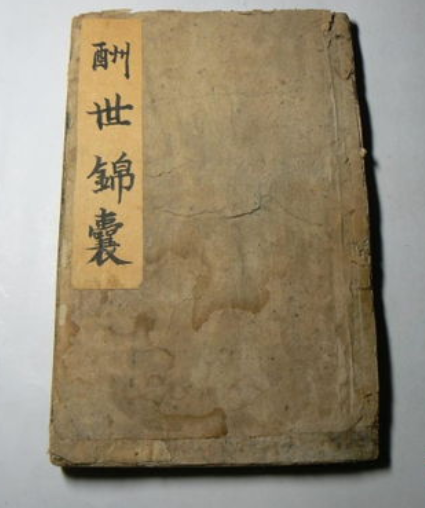 酬世錦囊